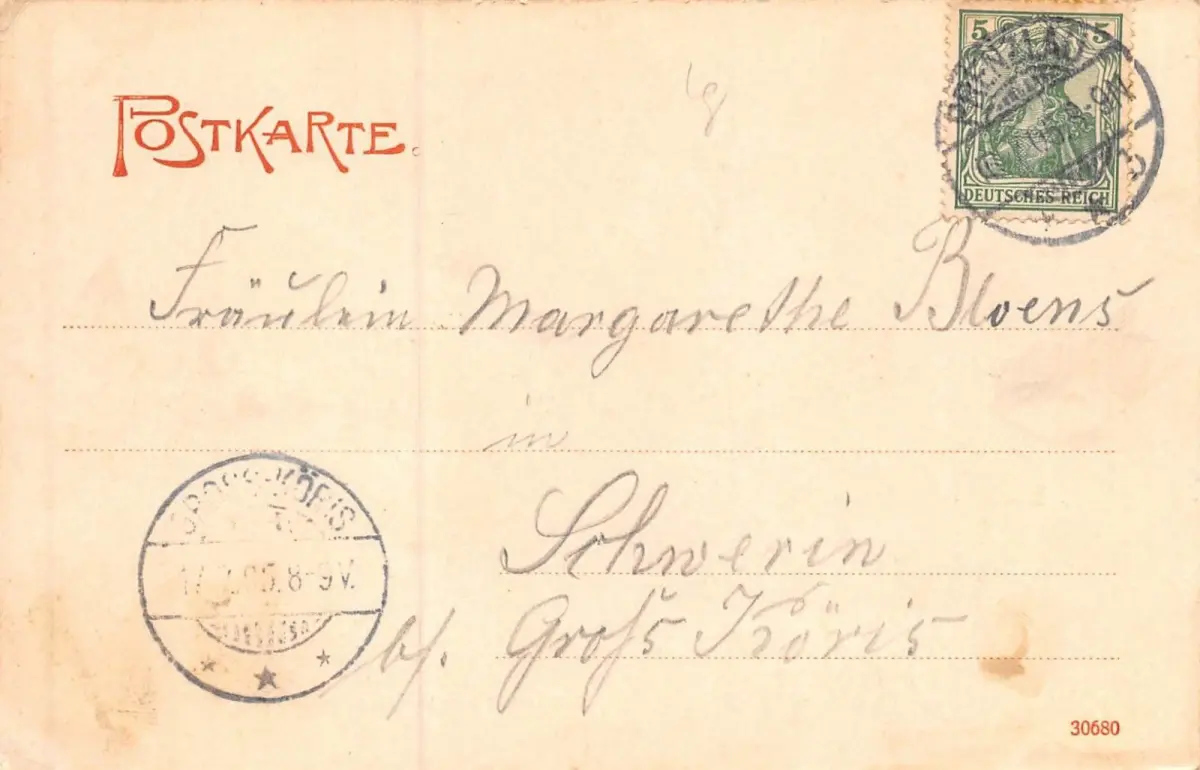 POSTKARTE.
5 5
DEUTSCHES REICH
Fräulein Margarethe Bloens
in
Schwerin
b/. Groſs Köris
GROSS-KÖRIS
8-9V.
30680